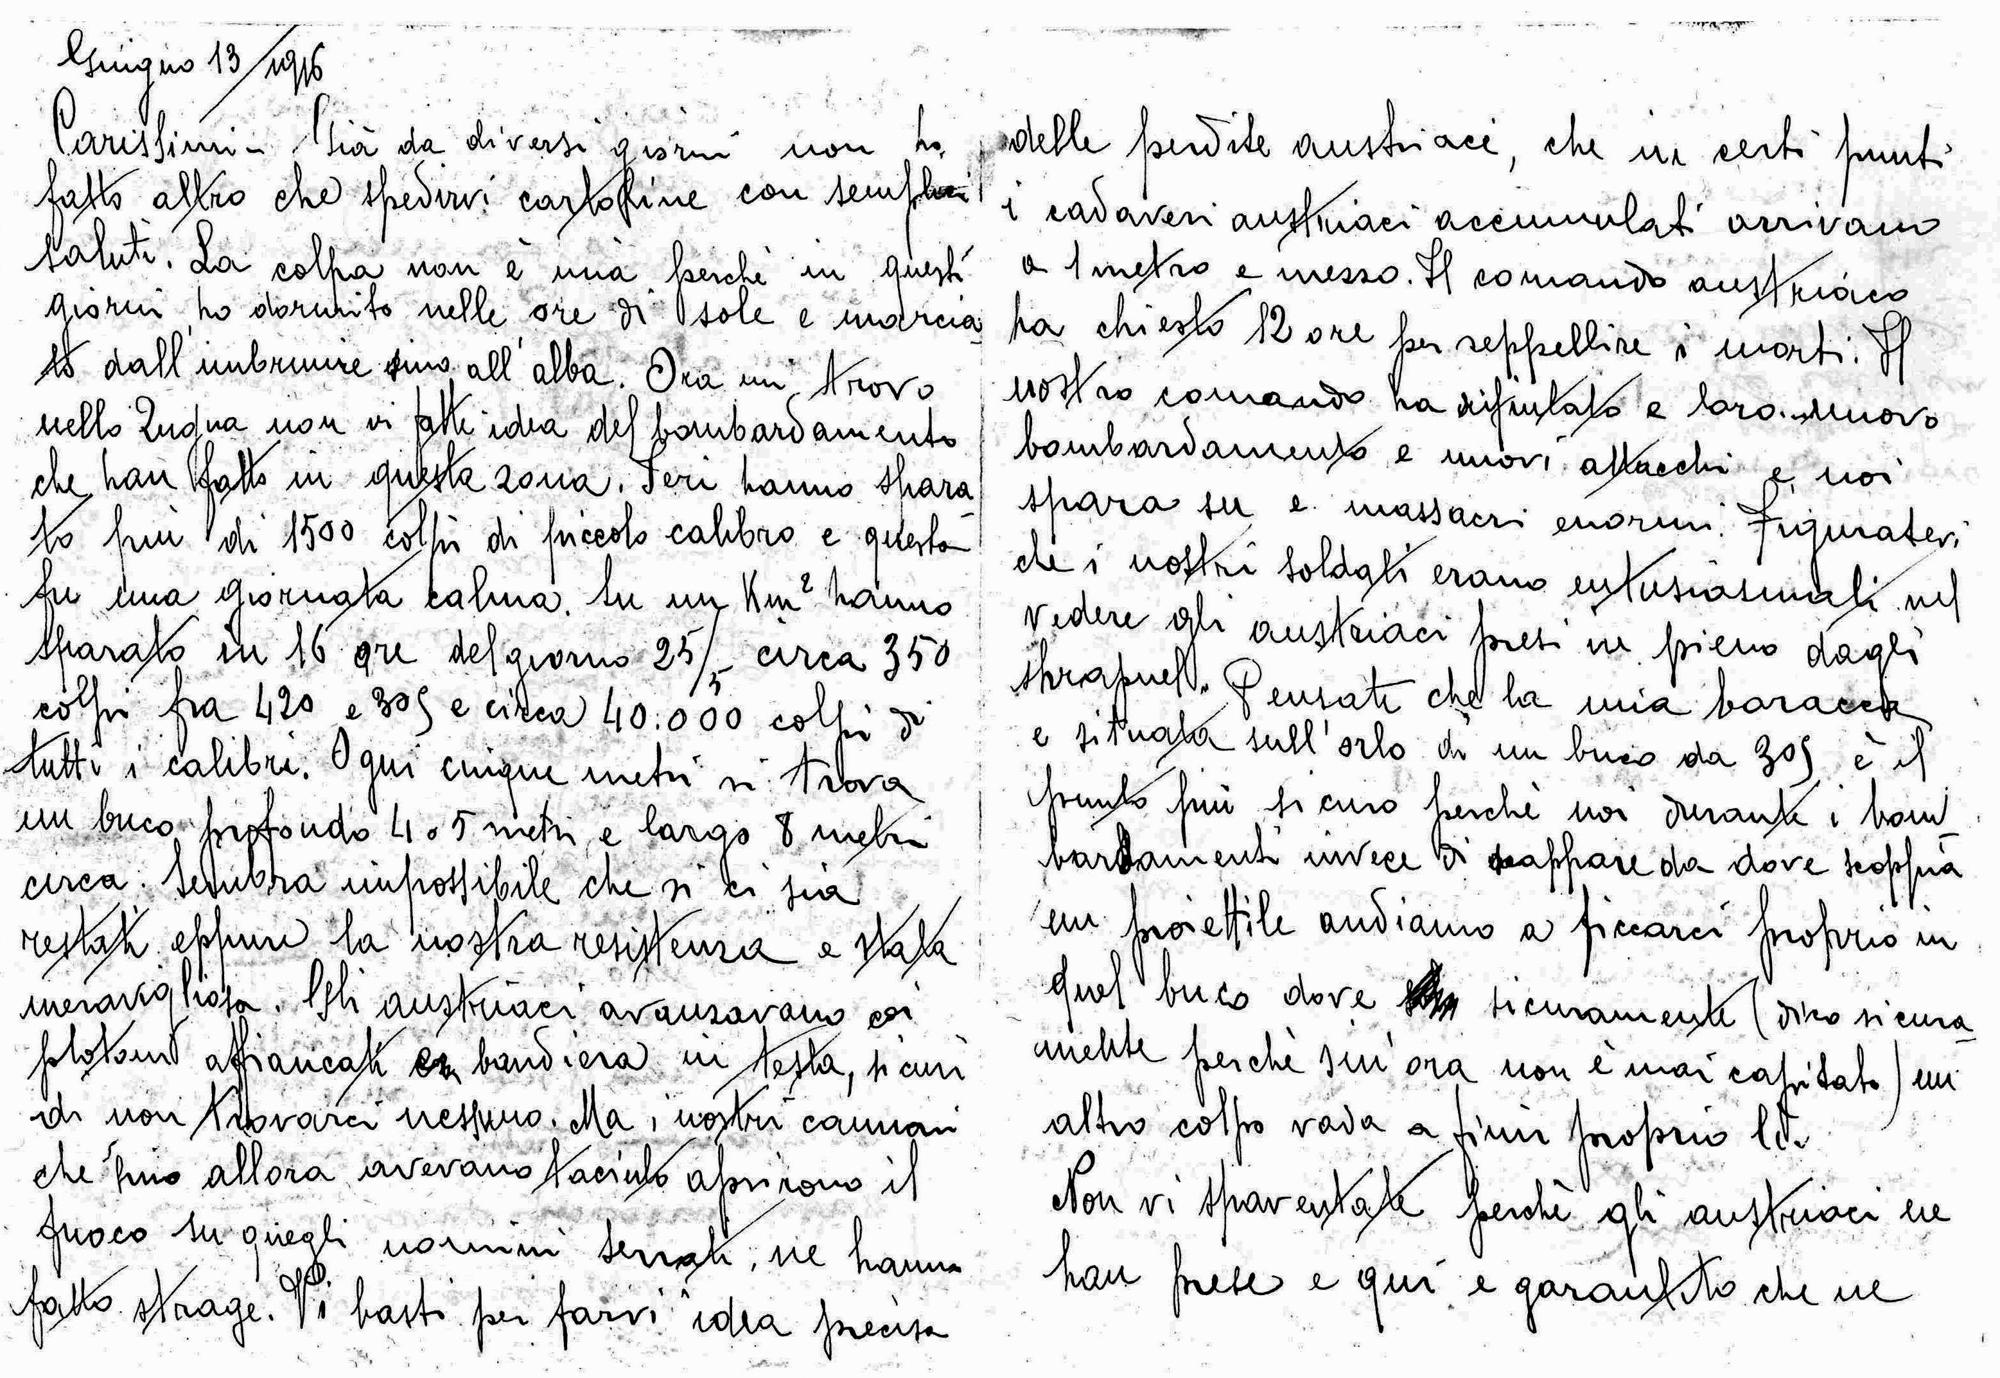 Giugno 13/1916
Carissimi - Già da diversi giorni non ho
fatto altro che spedirvi cartoline con semplici
saluti. La colpa non è mia perchè in questi
giorni ho dormito nelle ore di sole e marcia
to dall'imbrunire sino all'alba. Ora mi trovo
nello Zugna non vi fatte idea del bombardamento
che han fatto in questa zona. Ieri hanno spara
to più di 1500 colpi di piccolo calibro e questa
fu una giornata calma. Su un Km² hanno
sparato in 16 ore del giorno 25/5 circa 350
colpi fra 420 e 305 e circa 40.000 colpi di
tutti i calibri. Ogni cinque metri si trova
un buco profondo 4 o 5 metri e largo 8 metri
circa. Sembra impossibile che si ci sia
restati eppure la nostra resistenza e stata
meravigliosa. Gli austriaci avanzavano coi
plotoni affiancati bandiera in testa, sicuri
di non trovarci nessuno. Ma i nostri cannoni
che fino allora avevano taciuto aprirono il
fuoco su quegli uomini serrati, ne hanno
fatto strage. Vi basti per farvi idea precisa
delle perdite austriace, che in certi punti
i cadaveri austriaci accumulati arrivano
a 1 metro e mezzo. Il comando austriaco
ha chiesto 12 ore per seppellire i morti. Il
nostro comando ha rifiutato e loro nuovo
bombardamento e nuovi attacchi e noi
spara su e massacri enormi. Figuratevi
che i nostri soldati erano entusiasmati nel
vedere gli austriaci presi in pieno dagli
shrapnel. Pensate che la mia baracca
e situata sull'orlo di un buco da 305 è il
punto più sicuro perchè noi durante i bom
bardamenti invece di scappare da dove scoppia
un proiettile andiamo a ficcarci proprio in
quel buco dove sicuramente (dico sicura
mente perchè sin'ora non è mai capitato) un
altro colpo vada a finir proprio lì.
Non vi spaventate perchè gli austriaci ne
han prese e qui e garantito che ne